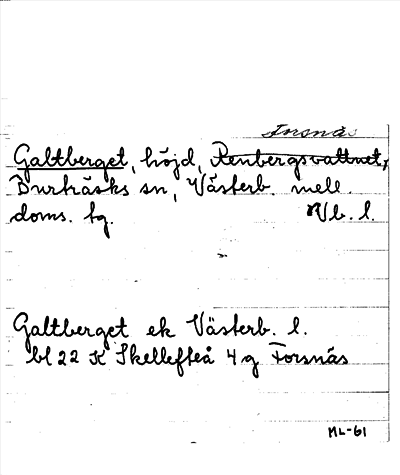 Forsnäs
Galtberget, höjd, Renbergsvattnet,
Burträsks sn, Västerb. mell.
doms. tg. Vb. l.
Galtberget ek Västerb. l.
bl 22 K Skellefteå 4 g Forsnäs
ML-61